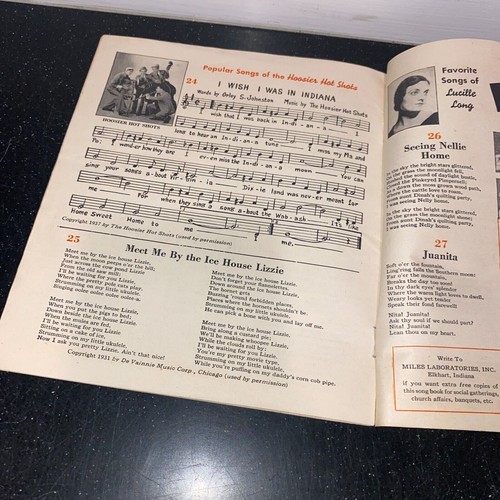 Popular Songs of the Hoosier Hot Shots
24
I WISH I WAS IN INDIANA
Words by Orley S. Johnston Music by The Hoosier Hot Shots
HOOSIER HOT SHOTS
I wish that I was back in In-di-an-a I
long to hear an In-di-an-a tune I miss my Ma and
Pa; I wonder how they are I ev-en miss the In-di-an-a moon You can
sing your songs a-bout Vir-gin-ia Dix-ie land was nev-er meant for
me For when they sing a song a-bout the Wab-ash It's like
Home Sweet Home to me me.
Copyright 1937 by The Hoosier Hot Shots (used by permission)
25
Meet Me By the Ice House Lizzie
Meet me by the ice house Lizzie,
When the moon peeps o'er the hill;
Just across the cow pond Lizzie
From the old saw mill;
I'll be waiting for you Lizzie,
Where the pretty pole cats play.
Strumming on my little ukulele,
Singing oder oder oder oder-a.
Meet me by the ice house Lizzie,
When you put the pigs to bed;
Down beside the ice house Lizzie,
When the hams are fed.
I'll be waiting for you Lizzie
Sitting on
Strumming on my little ukulele,
Now I ask you pretty Lizzie, Ain't that nice!
Meet me by the ice house Lizzie.
Don't forget your flannelettes,
Down behind the ice house Lizzie.
The hornet gets
Buzzing 'round forbidden places,
Places where the hornets shouldn't be.
Strumming on my little ukulele,
He can pick a bone with you and lay off me.
Meet me by the ice house Lizzie,
Bring along a makeup whoopee;
We'll be making whoopee Lizzie,
While the clouds roll by;
I'll be waiting for you Lizzie,
You're my pretty movie type,
Strumming on my little ukulele,
While you're puffing on my daddy's corn cob pipe.
Copyright 1931 by De Vainnie Music Corp., Chicago (used by permission)
Favorite
Songs of
Lucille
Long
26
Seeing Nellie
Home
In the sky the bright stars glittered,
the grass the moonlight fell,
the sound of daylight hustle,
the Pinkeyed Pimpernell;
down the moss grown wood path,
Where the cattle love to roam,
From aunt Dinah's quilting party,
I was seeing Nelly home.
In the sky the bright stars glittered,
the grass the moonlight shone;
From aunt Dinah's quilting party,
I was seeing Nelly home.
27
Juanita
Soft o'er the fountain,
Ling'ring falls the Southern moon;
Far o'er the mountain,
Breaks the day too soon!
In thy dark eyes' splendor
Where the warm light loves to dwell,
Weary looks yet tender
Speak their fond farewell!
Nita! Juanita!
Ask thy soul if we should part?
Nita! Juanita!
Lean thou on my heart.
Write To
MILES LABORATORIES, INC.
Elkhart, Indiana
if you want extra free copies of
this song book for social gatherings,
church affairs, banquets, etc.